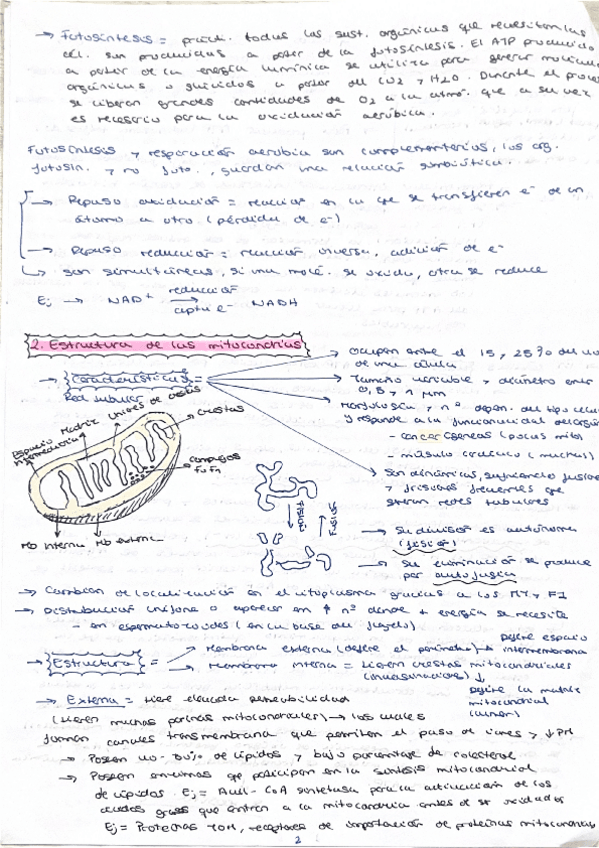 → Fotosíntesis = práct. todas las sust. orgánicas que necesitan las
cél. son producidas a partir de la fotosíntesis. El ATP producido
a partir de la energía lumínica se utiliza para generar moléculas
orgánicas o glúcidos a partir del CO2 y H2O. Durante el proceso
se liberan grandes cantidades de O2 a la atmo. que a su vez
es necesario para la oxidación aeróbica.
Fotosíntesis y respiración aerobia son complementarios, los org.
fotosin. y no foto., guardan una relación simbiótica.
→ Repaso oxidación = reacción en la que se transfieren e- de un
átomo a otro (pérdida de e-)
→ Repaso reducción = reacción inversa, adición de e-
↳ son simultáneas, si una molé. se oxida, otra se reduce
Ej → NAD+ reducción → capta e- NADH
2. Estructura de las mitocondrias
→ Características =
Red tubular
→ Ocupan entre el 15, 25% del
de una célula
→ Tamaño variable → diámetro entre
0,5 y 1 µm
Morfología y nº depen. del tipo celular
y responde a la funcionalidad del
- (pocas mito)
- músculo cardíaco (muchas)
→ Son dinámicas, sufriendo fusiones
y fisiones frecuentes que
generan redes tubulares
Espacio intermembrana
Matriz
Uniones de crestas
crestas
complejos
F0 F1
Mb interna
Mb externa
FISIÓN
FUSIÓN
→ Su división es autónoma
(fisión)
→ Su eliminación se produce
por autofagia
→ Cambian de localización en el citoplasma gracias a los MT y FI
→ Distribución uniforme o aparecen en ↑ nº donde + energía se necesite
- en espermatozoides (en la base del flagelo)
→ Estructura =
Membrana externa (define el perímetro) →
define espacio
intermembrana
Membrana interna = tienen crestas mitocondriales
(invaginaciones) ↓
define la matriz
mitocondrial
(lumen)
→ Externa = tiene elevada permeabilidad
(tienen muchas porinas mitocondriales) → las cuales
forman canales transmembrana que permiten el paso de iones y ↓PM
→ Poseen 40-50% de lípidos y bajo porcentaje de colesterol
→ Poseen enzimas que participan en la síntesis mitocondrial
de lípidos. Ej = Acil-CoA sintetasa para la activación de los
ácidos grasos que entran a la mitocondria antes de ser oxidados
Ej = Proteínas TOM, receptores de importación de proteínas mitocondriales
2